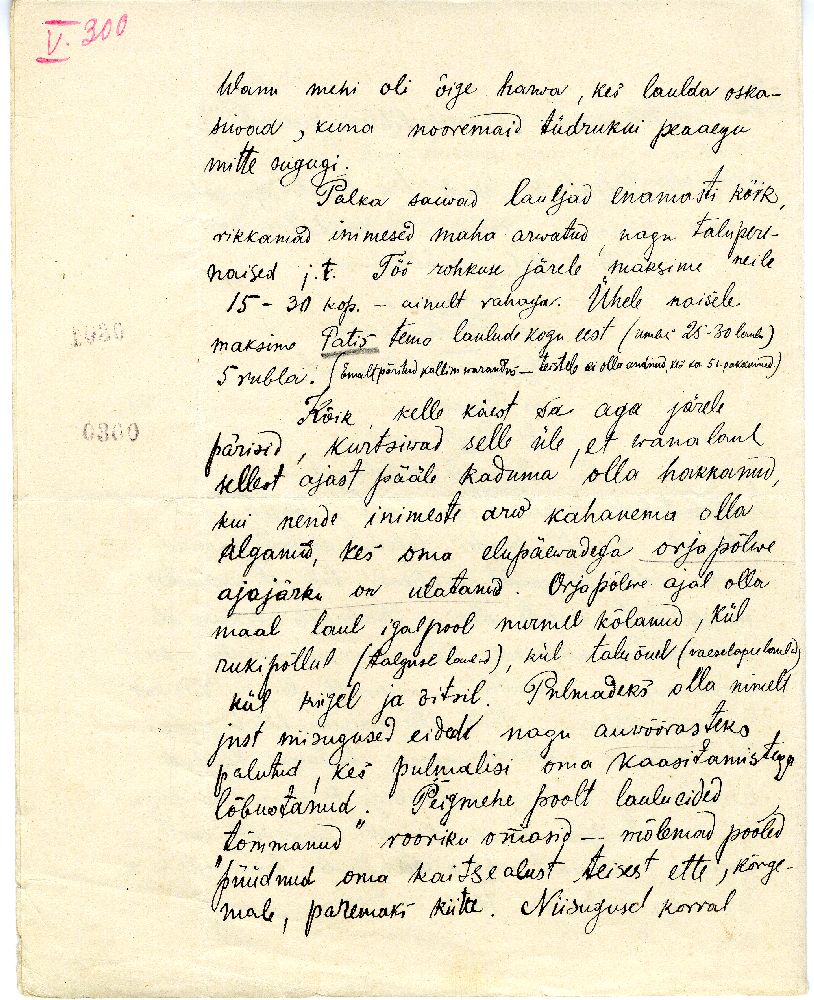 V. 300
Wanu mehi oli õige harwa, kes laulda oska-
siwad, kuna nooremaid tüdrukui peaaegu
mitte sugugi.
Palka saiwad lauljad enamasti kõik,
rikkamad inimesed maha arwatud, nagu talupere-
naised j.t. Töö rohkuse järele maksime neile
15-30 kop. - ainult rahaga. Ühele naisele
maksime Patis tema laulude kogu eest (umbes 25-30 laulu)
5 rubla. (Emalt päritud kallim warandus — teistele ei olla andnud, kes ka 5 r. pakkunud)
Kõik, kelle käest Sa aga järele
pärisid, kurtsiwad selle üle, et wana laul
sellest ajast pääle kaduma olla hakkanud,
kui nende inimeste arw kahanema olla
alganud, kes oma elupäewadega orjapõlwe
ajajärku on ulatanud. Orjapõlwe ajal olla
maal laul igalpool nurmel kõlanud, kül
rukipõllul (talguse laulud), kül taluõuel (waeselapse laulud)
kül kiigel ja õitsil. Pulmadeks olla nimelt
just niisugused eided nagu auwõõrasteks
palutud, kes pulmalisi oma kaasitamistega
lõbustanud. Peigmehe poolt laulueided
"tõmmanud" rooriku omasid — mõlemad pooled
püüdnud oma kaitsealust teisest ette, kõrge-
male, paremaks kiitte. Niisugusel korral
0300